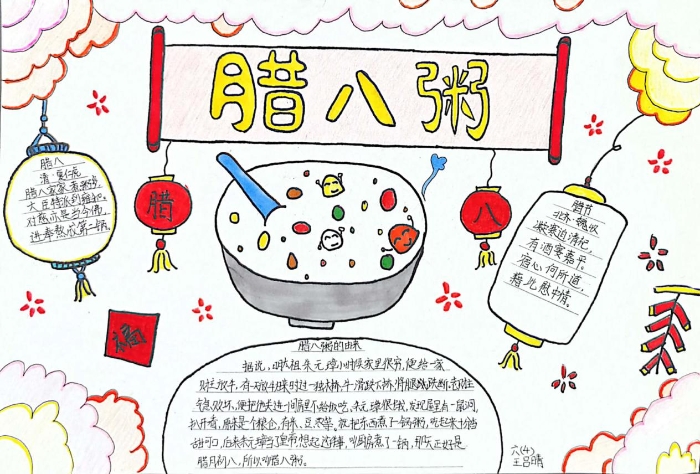 腊八粥
腊八
清·夏仁虎
腊八家家煮粥多,
大臣特派到雍和。
对慈亦是当今佛,
进奉熬成第一锅。
腊
八
腊节
北齐·魏收
凝寒迫清祀,
有酒宴嘉平。
宿心何所道,
藉此慰中情。
福
腊八粥的由来
据说,明太祖朱元璋小时候家里很穷,便给一家
财主放牛。有一次放牛归来时过一独木桥,牛滑跌下桥,将腿跌断,老财主
气急败坏,便把他关进一间房里不给饭吃。朱元璋很饿,发现屋里有一鼠洞,
扒开看,原来是个粮仓,有米、豆、枣等,就把东西煮了一锅粥,吃起来十分
甜可口,后来朱元璋当了皇帝,想起这件事,叫御厨煮了一锅,那天正好是
腊月初八,所以叫腊八粥。
六(4)
王吕晴